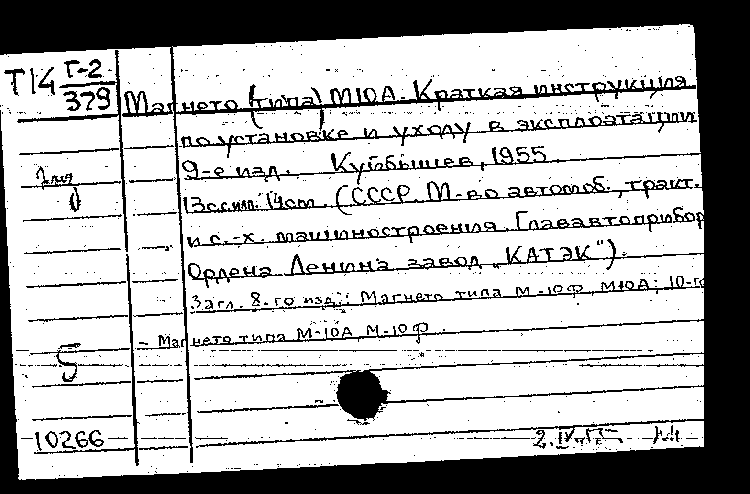 Т14 Г-2
379
Магнето (типа) М10А. Краткая инструкция
по установке и уходу в эксплоатации
9-е изд. Куйбышев, 1955.
13 с. с илл. 14 см. (СССР. М-во автомоб., тракт.
и с.-х. машиностроения. Глававтоприбор
Ордена Ленина завод „КАТЭК").
Загл. 8-го изд.: Магнето типа М-10Ф, М10А; 10-го
- Магнето типа М-10А, М-10Ф.
5
10266